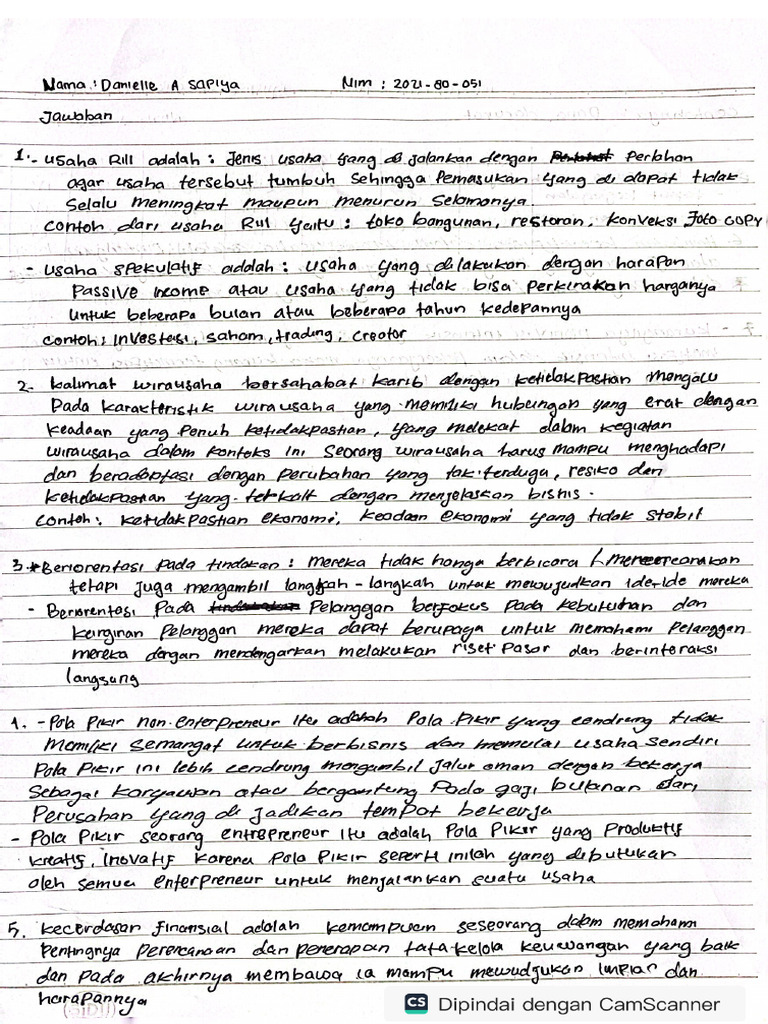 Nama : Danielle A Sapiya Nim : 2021-80-051
Jawaban
1. - Usaha Riil adalah : Jenis usaha yang di jalankan dengan Perlahan
agar usaha tersebut tumbuh sehingga Pemasukan yang di dapat tidak
selalu meningkat maupun menurun selamanya.
contoh dari usaha Riil yaitu : toko bangunan, restoran, konveksi Foto copy
- usaha spekulatif adalah : usaha yang dilakukan dengan harapan
Passive income atau usaha yang tidak bisa Perkirakan harganya
untuk beberapa bulan atau beberapa tahun kedepannya
contoh : investasi, saham, trading, creator
2. kalimat wirausaha bersahabat karib dengan ketidakpastian mengacu
Pada karakteristik wirausaha yang memiliki hubungan yang erat dengan
keadaan yang Penuh ketidakpastian, yang melekat dalam kegiatan
wirausaha dalam konteks ini seorang wirausaha harus mampu menghadapi
dan beradaptasi dengan perubahan yang tak terduga, resiko dan
ketidakpastian yang terkait dengan menjelaskan bisnis.
contoh : ketidakpastian ekonomi, keadaan ekonomi yang tidak stabil
3. * Beriorentasi Pada tindakan : mereka tidak hanya berbicara /
tetapi juga mengambil langkah-langkah untuk mewujudkan ide-ide mereka
- Beriorentasi Pada Pelanggan berfokus Pada kebutuhan dan
keinginan Pelanggan mereka dapat berupaya untuk memahami Pelanggan
mereka dengan mendengarkan melakukan riset Pasar dan berinteraksi
langsung
1. - Pola Pikir non-enterpreneur itu adalah Pola Pikir yang cendrung tidak
memiliki semangat untuk berbisnis dan memulai usaha sendiri
Pola Pikir ini lebih cendrung mengambil jalur aman dengan bekerja
sebagai karyawan atau bergantung Pada gaji bulanan dari
Perusahan yang di jadikan tempat bekerja
- Pola Pikir seorang entrepreneur itu adalah Pola Pikir yang Produktif
kreatif, inovatif karena Pola Pikir seperti inilah yang dibutukan
oleh semua enterpreneur untuk menjalankan suatu usaha
5. kecerdasan finansial adalah kemampuan seseorang dalam memahami
Pentingnya Perencanaan dan penerapan tata-kelola keuwangan yang baik
dan pada akhirnya membawa ia mampu mewudjukan impian dan
harapannya
CS Dipindai dengan CamScanner